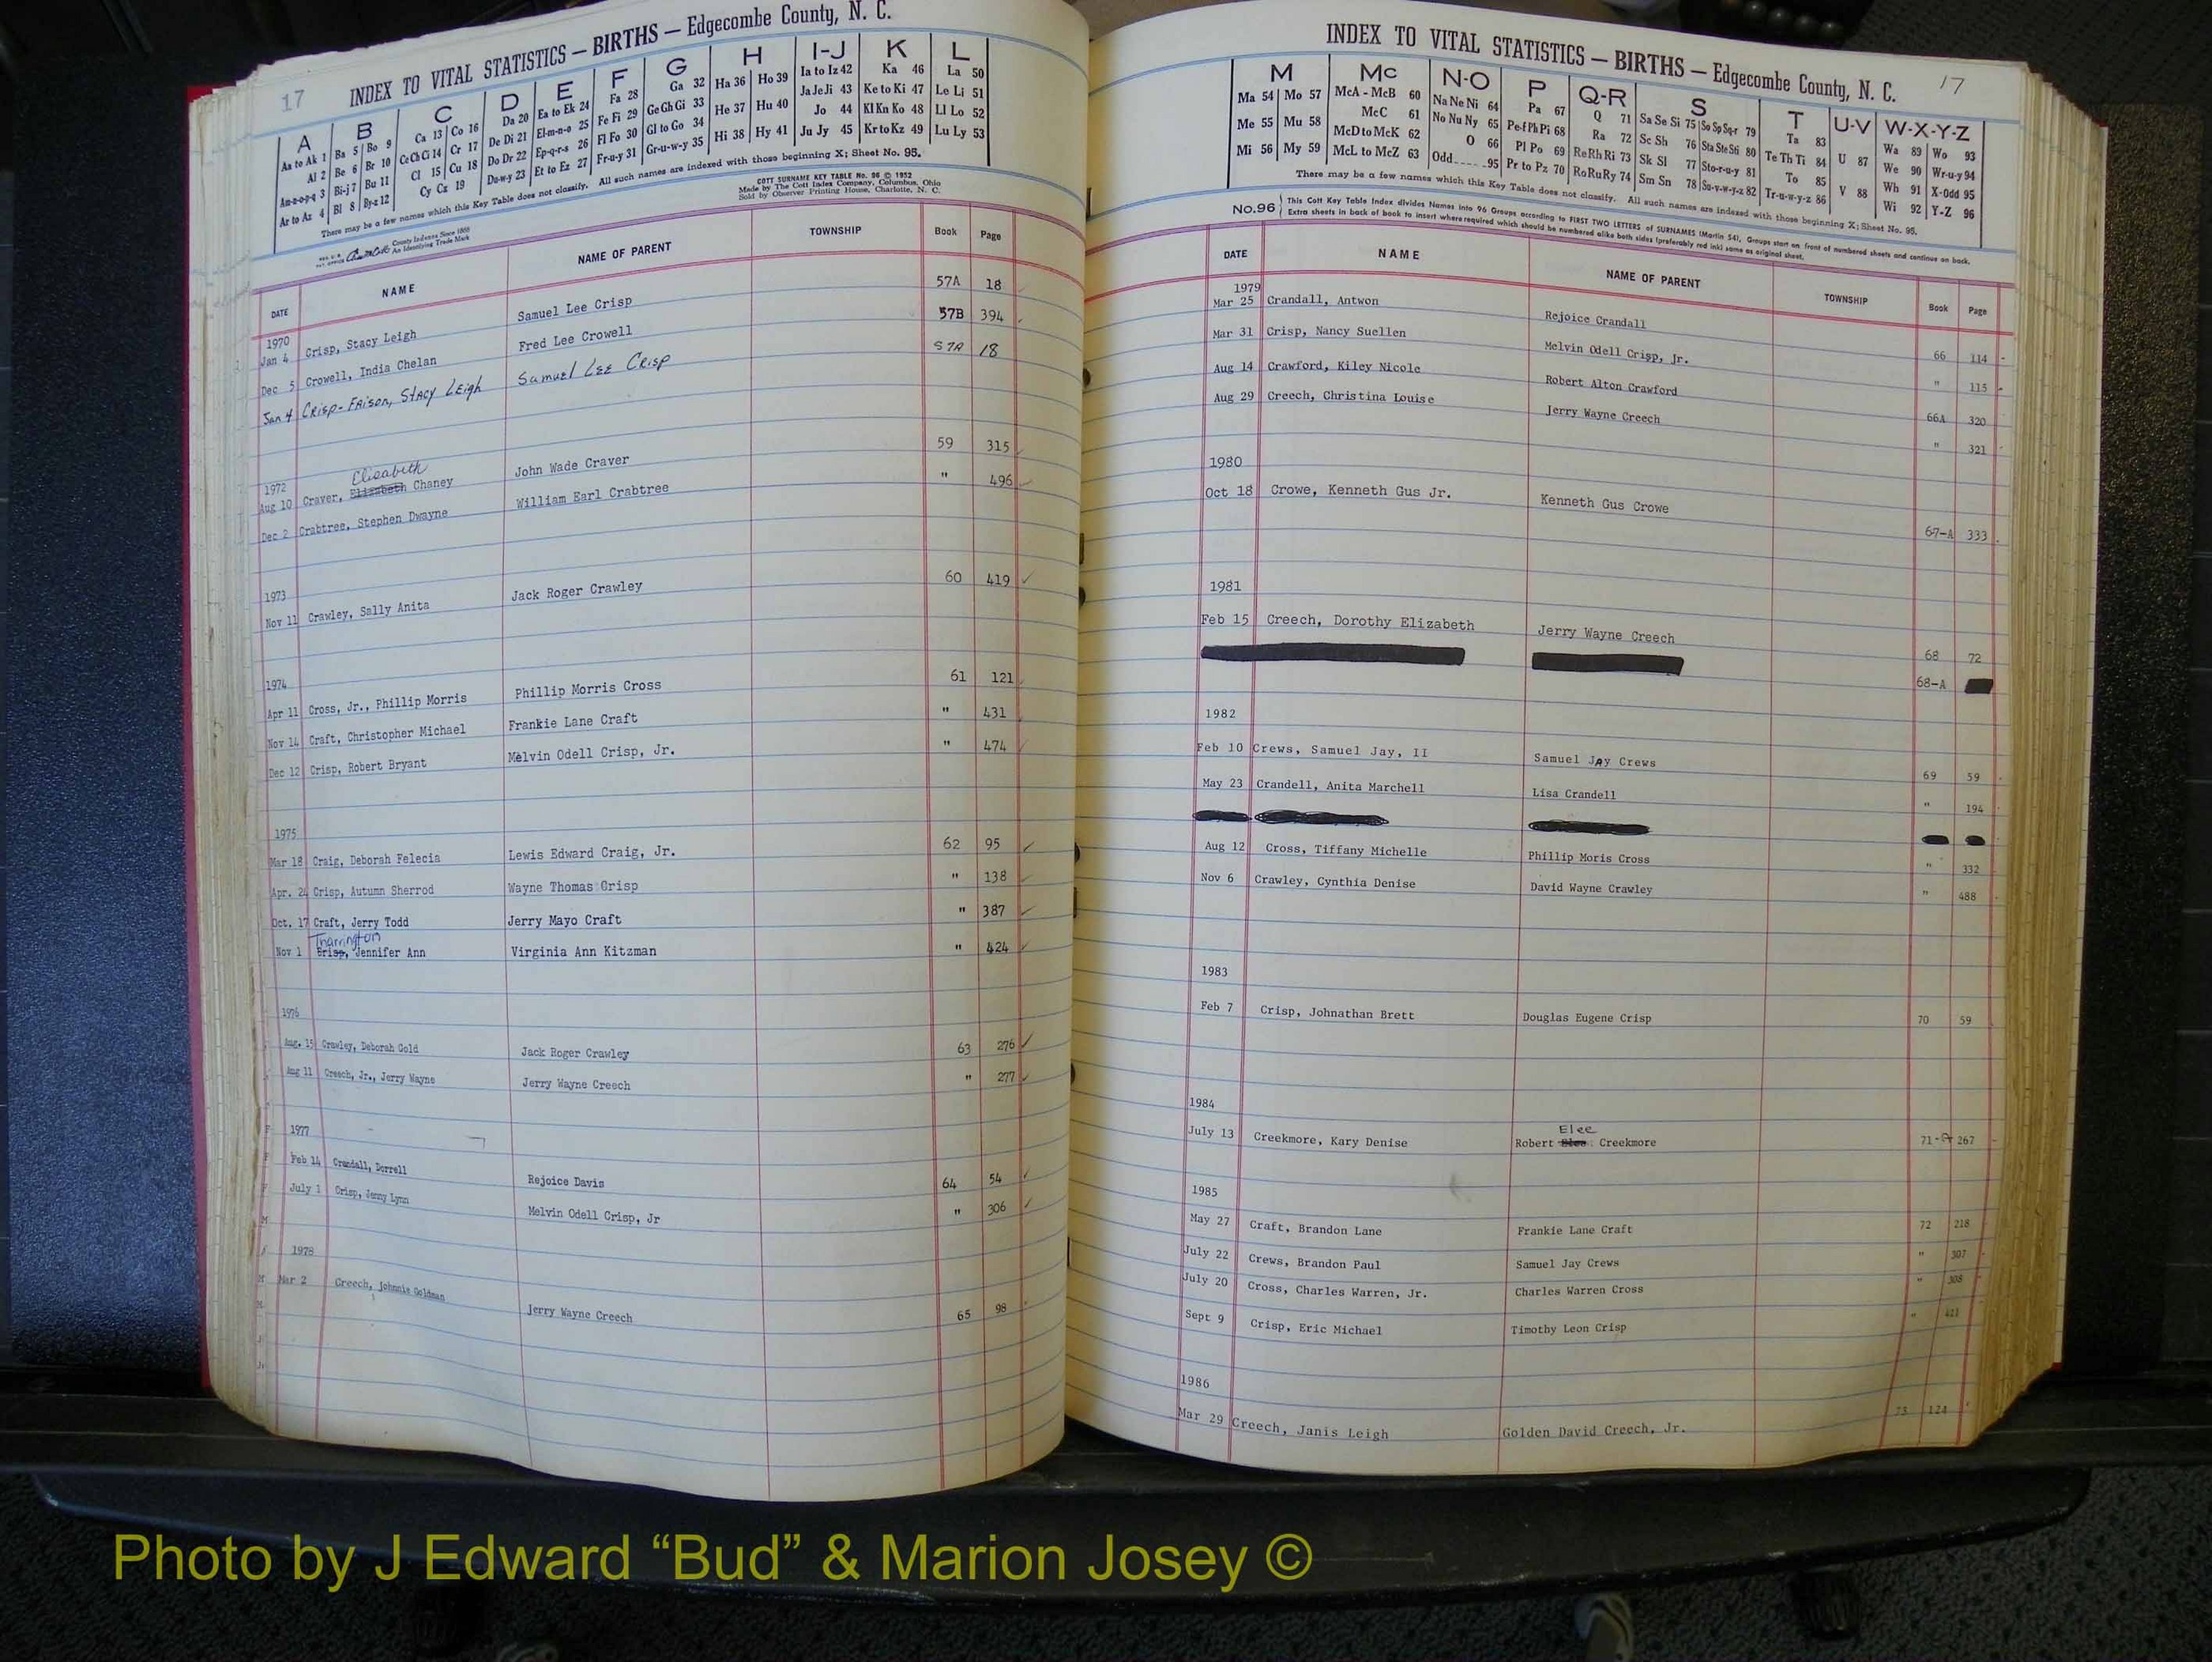 17
INDEX TO VITAL STATISTICS — BIRTHS — Edgecombe County, N. C.
A B C D E F G H I-J K L
Aa to Ak 1 Ba 5 Bo 9 Ca 13 Co 16 Da 20 Ea to Ek 24 Fa 28 Ga 32 Ha 36 Ho 39 Ia to Iz 42 Ka 46 La 50
Al 2 Be 6 Br 10 Ce Ch Ci 14 Cr 17 De Di 21 El-m-n-o 25 Fe Fi 29 Ge Gh Gi 33 He 37 Hu 40 Ja Je Ji 43 Ke to Ki 47 Le Li 51
Am-n-o-p-q 3 Bi-j 7 Bu 11 Cl 15 Cu 18 Do Dr 22 Ep-q-r-s 26 Fl Fo 30 Gl to Go 34 Hi 38 Hy 41 Jo 44 Kl Kn Ko 48 Ll Lo 52
Ar to Az 4 Bl 8 By-z 12 Cy Cz 19 Du-w-y 23 Et to Ez 27 Fr-u-y 31 Gr-u-w-y 35 Ju Jy 45 Kr to Kz 49 Lu Ly 53
There may be a few names which this Key Table does not classify. All such names are indexed with those beginning X; Sheet No. 95.
COTT SURNAME KEY TABLE No. 96 © 1952
Made by The Cott Index Company, Columbus, Ohio
Sold by Observer Printing House, Charlotte, N. C.
County Indexes Since 1888
An Identifying Trade Mark
DATE NAME NAME OF PARENT TOWNSHIP Book Page
1970
Jan 4 Crisp, Stacy Leigh Samuel Lee Crisp 57A 18
Dec 5 Crowell, India Chelan Fred Lee Crowell 57B 394
Jan 4 Crisp-Faison, Stacy Leigh Samuel Lee Crisp 57A 18
1972
Elisabeth
Aug 10 Craver, Elizabeth Chaney John Wade Craver 59 315
Dec 2 Crabtree, Stephen Dwayne William Earl Crabtree " 496
1973
Nov 11 Crawley, Sally Anita Jack Roger Crawley 60 419
1974
Apr 11 Cross, Jr., Phillip Morris Phillip Morris Cross 61 121
Nov 14 Craft, Christopher Michael Frankie Lane Craft " 431
Dec 12 Crisp, Robert Bryant Melvin Odell Crisp, Jr. " 474
1975
Mar 18 Craig, Deborah Felecia Lewis Edward Craig, Jr. 62 95
Apr. 24 Crisp, Autumn Sherrod Wayne Thomas Crisp " 138
Oct. 17 Craft, Jerry Todd Jerry Mayo Craft " 387
Tharrington
Nov 1 Crisp, Jennifer Ann Virginia Ann Kitzman " 424
1976
Aug. 15 Crawley, Deborah Gold Jack Roger Crawley 63 276
Aug 11 Creech, Jr., Jerry Wayne Jerry Wayne Creech " 277
1977
Feb 14 Crandall, Derrell Rejoice Davis 64 54
July 1 Crisp, Jenny Lynn Melvin Odell Crisp, Jr " 306
1978
Mar 2 Creech, Johnnie Goldman Jerry Wayne Creech 65 98
INDEX TO VITAL STATISTICS — BIRTHS — Edgecombe County, N. C. 17
M Mc N-O P Q-R S T U-V W-X-Y-Z
Ma 54 Mo 57 McA - McB 60 Na Ne Ni 64 Pa 67 Q 71 Sa Se Si 75 So Sp Sq-r 79 Ta 83 Wa 89 Wo 93
Me 55 Mu 58 McC 61 No Nu Ny 65 Pe-f Ph Pi 68 Ra 72 Sc Sh 76 Sta Ste Sti 80 Te Th Ti 84 U 87 We 90 Wr-u-y 94
Mi 56 My 59 McD to McK 62 O 66 Pl Po 69 Re Rh Ri 73 Sk Sl 77 Sto-r-u-y 81 To 85 V 88 Wh 91 X-Odd 95
McL to McZ 63 Odd 95 Pr to Pz 70 Ro Ru Ry 74 Sm Sn 78 Su-v-w-y-z 82 Tr-u-w-y-z 86 Wi 92 Y-Z 96
There may be a few names which this Key Table does not classify. All such names are indexed with those beginning X; Sheet No. 95.
No. 96 This Cott Key Table Index divides Names into 96 Groups according to FIRST TWO LETTERS of SURNAMES (Martin 54). Groups start on front of numbered sheets and continue on back.
Extra sheets in back of book to insert where required which should be numbered alike both sides (preferably red ink) same as original sheet.
DATE NAME NAME OF PARENT TOWNSHIP Book Page
1979
Mar 25 Crandall, Antwon Rejoice Crandall 66 114
Mar 31 Crisp, Nancy Suellen Melvin Odell Crisp, Jr. " 115
Aug 14 Crawford, Kiley Nicole Robert Alton Crawford 66A 320
Aug 29 Creech, Christina Louise Jerry Wayne Creech " 321
1980
Oct 18 Crowe, Kenneth Gus Jr. Kenneth Gus Crowe 67-A 333
1981
Feb 15 Creech, Dorothy Elizabeth Jerry Wayne Creech 68 72
68-A
1982
Feb 10 Crews, Samuel Jay, II Samuel JAy Crews 69 59
May 23 Crandell, Anita Marchell Lisa Crandell " 194
Aug 12 Cross, Tiffany Michelle Phillip Moris Cross " 332
Nov 6 Crawley, Cynthia Denise David Wayne Crawley " 488
1983
Feb 7 Crisp, Johnathan Brett Douglas Eugene Crisp 70 59
1984
Elee
July 13 Creekmore, Kary Denise Robert Creekmore 71-A 267
1985
May 27 Craft, Brandon Lane Frankie Lane Craft 72 218
July 22 Crews, Brandon Paul Samuel Jay Crews " 307
July 20 Cross, Charles Warren, Jr. Charles Warren Cross " 308
Sept 9 Crisp, Eric Michael Timothy Leon Crisp "
1986
Mar 29 Creech, Janis Leigh Golden David Creech, Jr. 73 124
Photo by J Edward “Bud” & Marion Josey ©